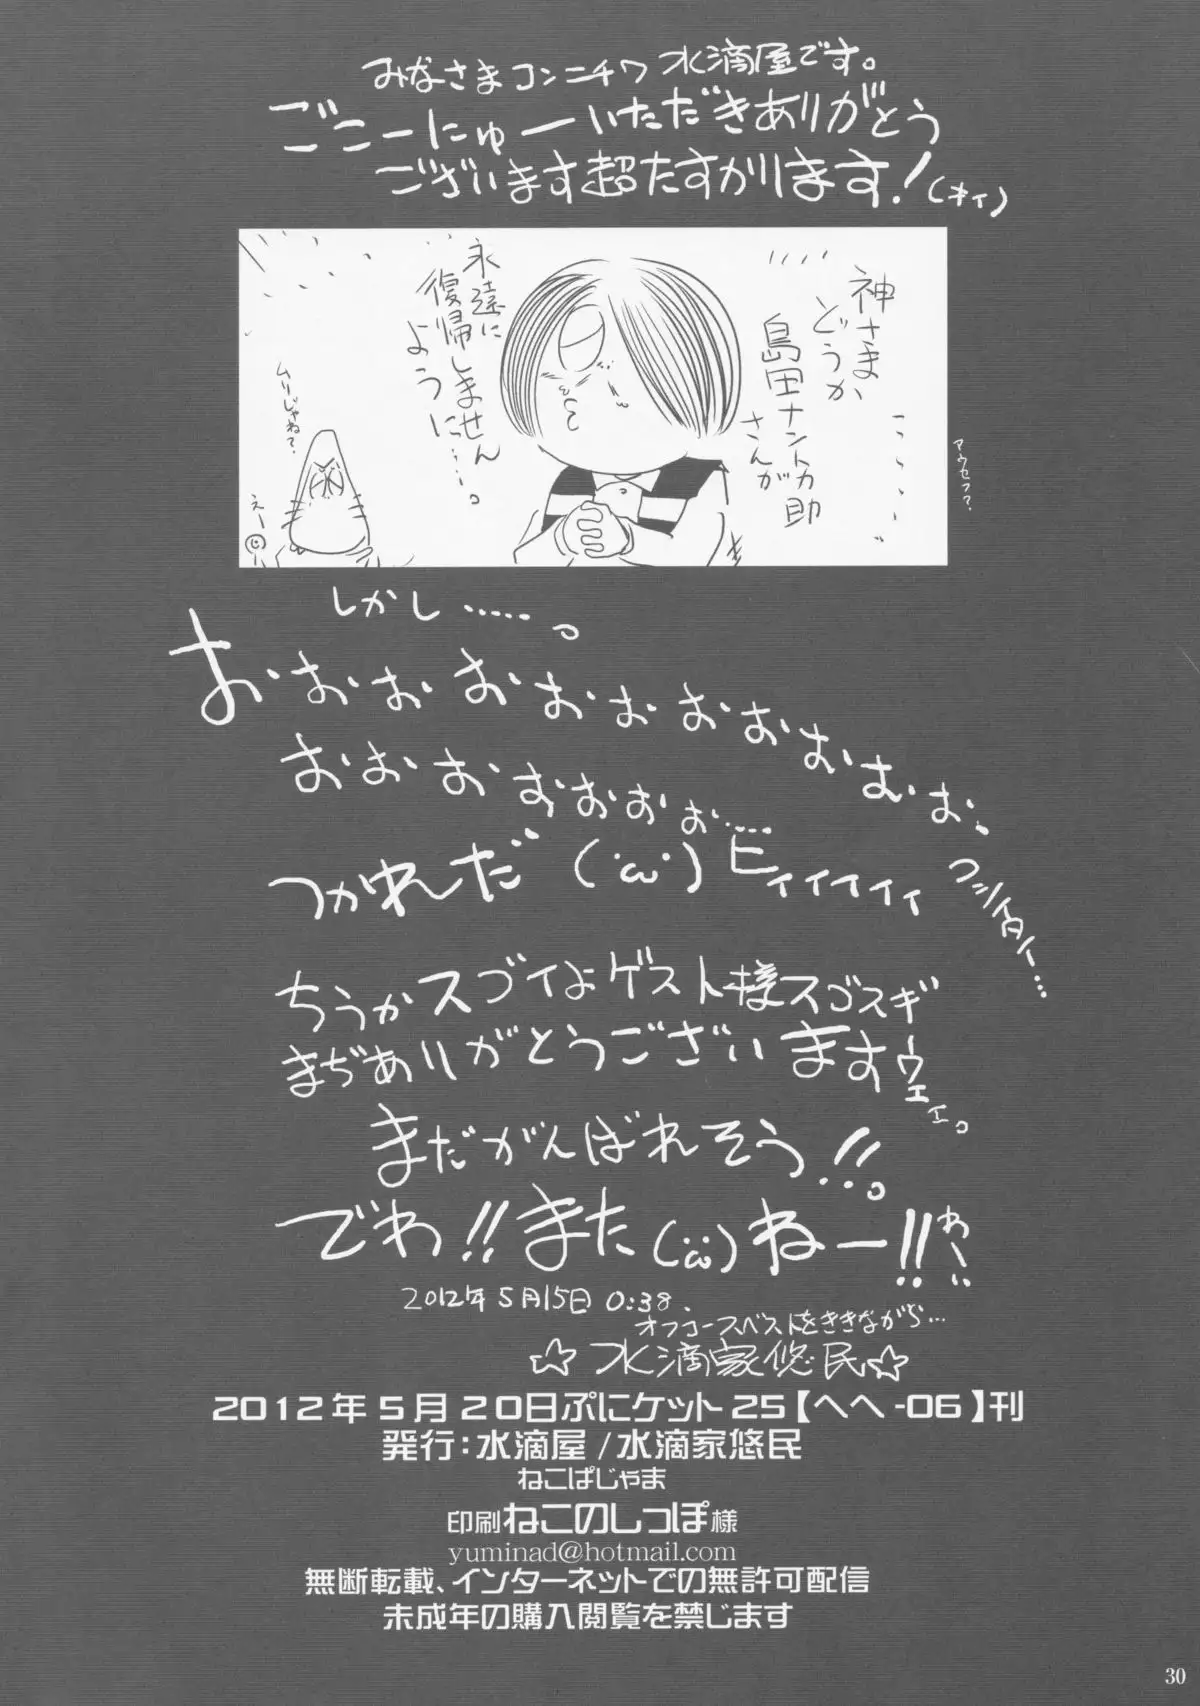 みなさまコンニチワ 水滴屋です。
ごこーにゅーいただきありがとう
ございます超たすかります!(オイ)
神さま
どうか
島田ナントカ助
さんが
永遠に
復帰しません
ように……。
アウセフ?
ムリじゃね?
えー
しかし……。
おおおおおおおおおおおお、
おおおおおおおお……
つかれだ(・ω・)ビィイイイイ
コシイタイ…
ちうかスゴイよゲスト様スゴスギ
まぢありがとうございますウェェ。
まだがんばれそう!!。
でわ!!また(・ω・)ねー!!わーい
2012年5月15日 0:38.
オフコースベストをききながら…
☆水滴家悠民☆
2012年5月20日ぷにケット25【へへ-06】刊
発行:水滴屋/水滴家悠民
ねこぱじゃま
印刷ねこのしっぽ様
yuminad@hotmail.com
無断転載、インターネットでの無許可配信
未成年の購入閲覧を禁じます
30